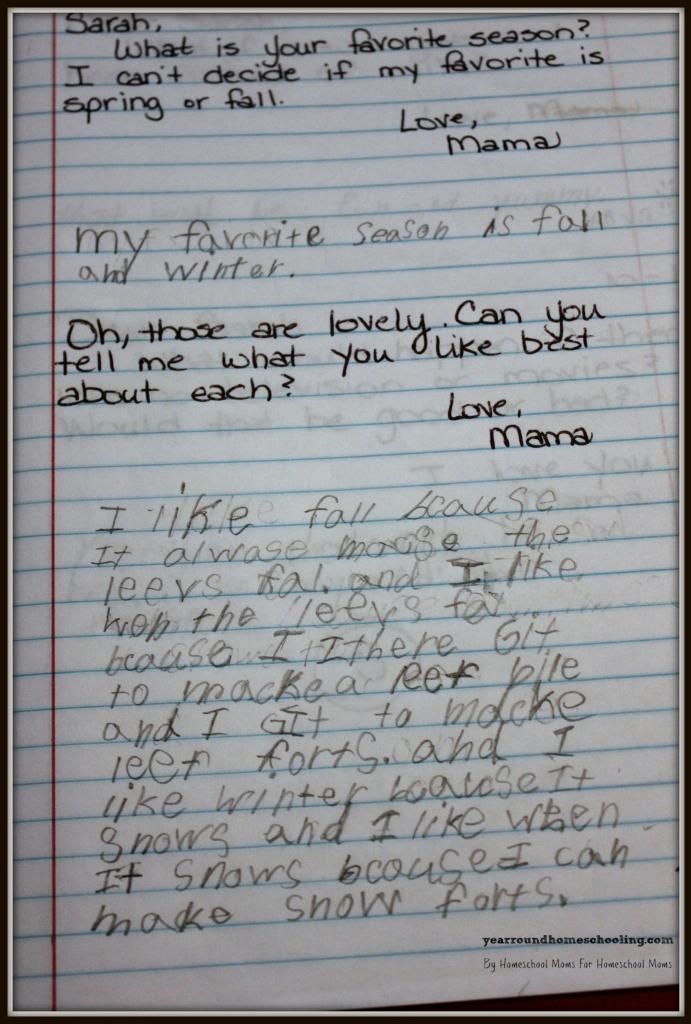 Sarah,
What is your favorite season?
I can't decide if my favorite is
spring or fall.
Love,
Mama
my favorite season is fall
and winter.
Oh, those are lovely. Can you
tell me what you like best
about each?
Love,
Mama
I like fall bcause
It alwase macse the
leevs fal. and I like
wen the leevs fal.
bcause I ethere Git
to macke a leef pile
and I Git to macke
leef forts. and I
like winter bcause It
Snows and I like when
It Snows bcause I can
make snow forts.
yearroundhomeschooling.com
By Homeschool Moms For Homeschool Moms